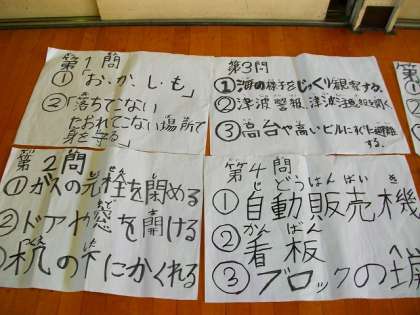 第1問
①「お、か、し、も」
②「落ちてこない
たおれてこない場所で
身を守る」
第3問
①海の様子をじっくり観察する。
②津波警報、津波注意報を聞く
③高台や高いビルにすぐに避難
する。
第2問
①ガスの元栓を閉める
②ドアや窓を開ける
③机の下にかくれる
第4問
①自動販売機
②看板
③ブロックの塀
第